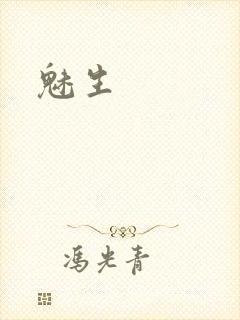 魅生
馮光青